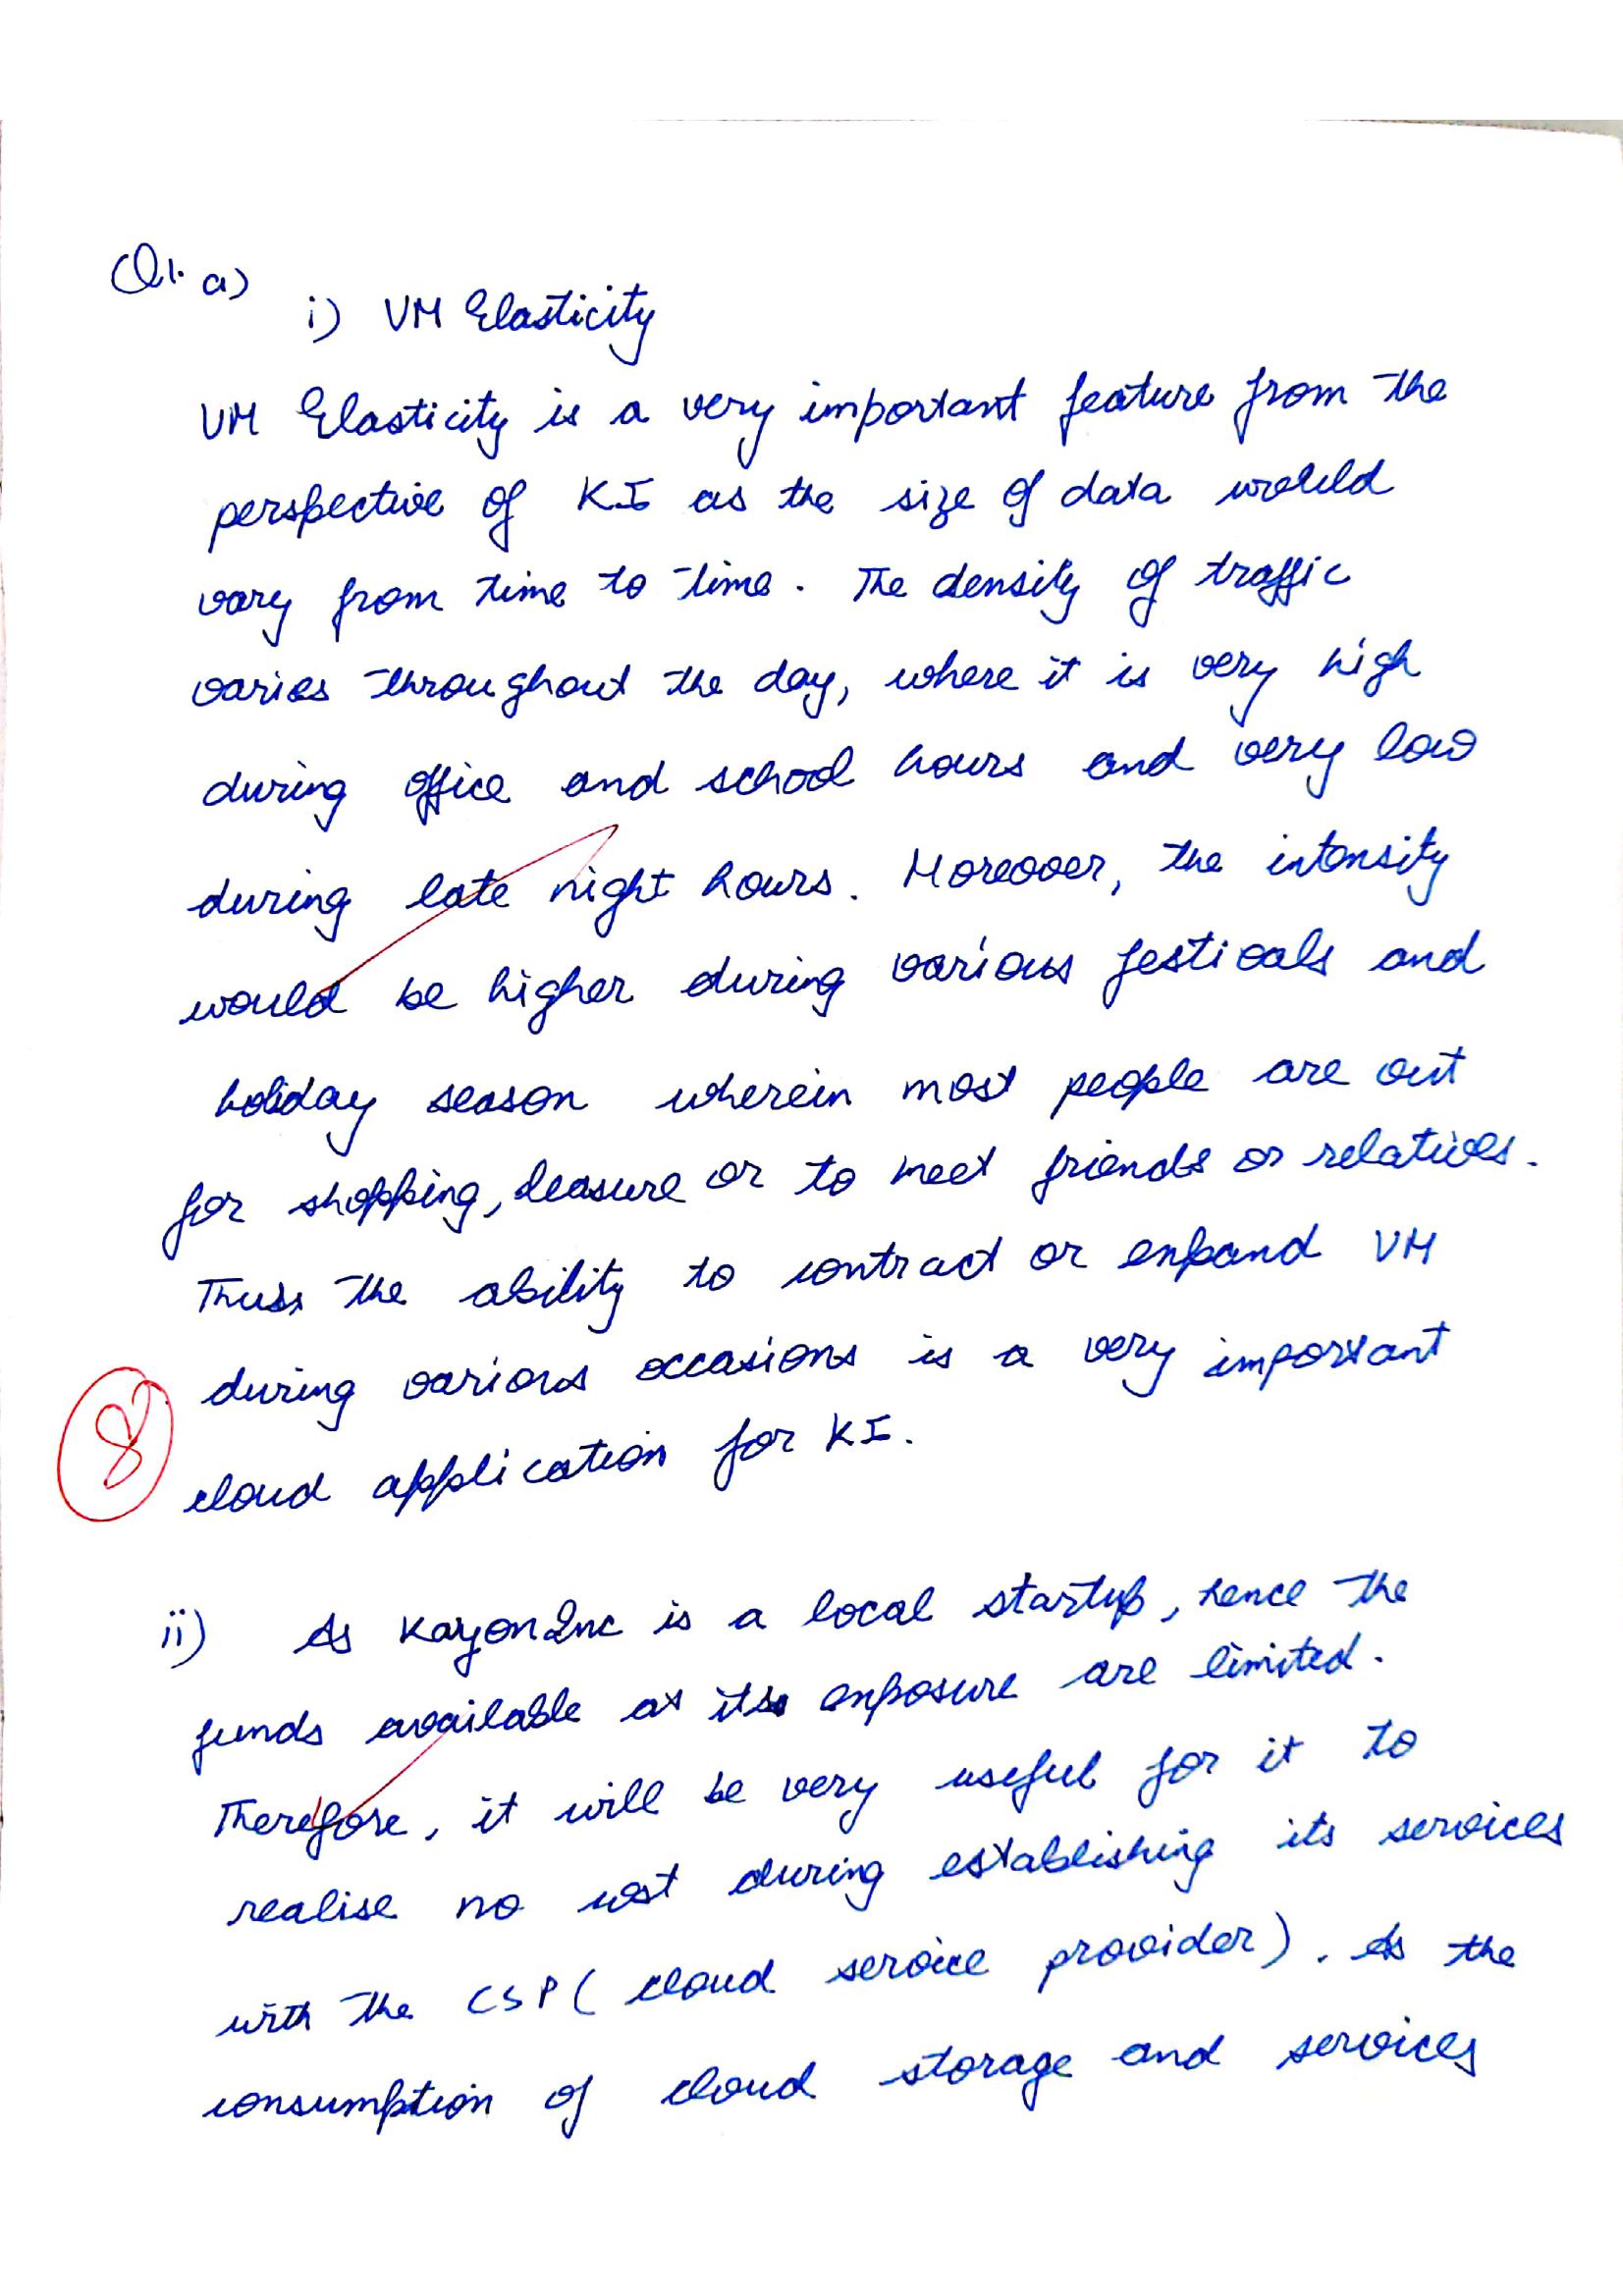 Q1. a)
i) VM Elasticity
VM Elasticity is a very important feature from the
perspective of KI as the size of data would
vary from time to time. The density of traffic
varies throughout the day, where it is very high
during office and school hours and very low
during late night hours. Moreover, the intensity
would be higher during various festivals and
holiday season wherein most people are out
for shopping, leasure or to meet friends or relatives.
Thus, the ability to contract or expand VM
during various occasions is a very important
8
cloud application for KI.
ii) As KayonInc is a local startup, hence the
funds available at its exposure are limited.
Therefore, it will be very useful for it to
realise no cost during establishing its services
with the CSP (cloud service provider). As the
consumption of cloud storage and services